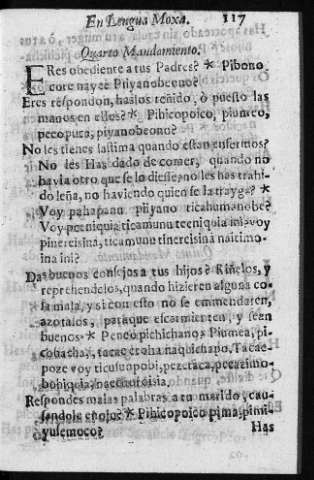 En Lengua Moxa. 117
Quarto Mandamiento.
ERes obediente a tus Padres? * Pibono
ecore nayee Piiyanobeono?
Eres respondon, haslos reñido, ò puesto las
manos en ellos? * Pibicopoico, piunico,
pecopura, piyanobeono?
No les tienes lastima quando estan enfermos?
No les Has dado de comer, quando no
havia otro que se lo diesse, no les has trahi-
do leña, no haviendo quien se la trayga? *
Voy pahapanu piiyano ticahumanobe?
Voy peeniquia ticamunu teeniquia ini, voy
pinercisina, ticamunu tinercisina naicimo-
ina ini?
Das buenos consejos a tus hijos? Riñelos, y
reprehendelos, quando hizieren alguna co-
sa mala, y si con esto no se emmendaren,
azotalos, paraque escarmienten, y sean
buenos. * Peneo pichichano? Piumea, pi-
cobacha, tacae
poze voy ticusuopobi,
Respondes malas palabras a tu marido, cau-
sandole enojo? * Pibicopoico pima, pimi-
yusemoco? Has